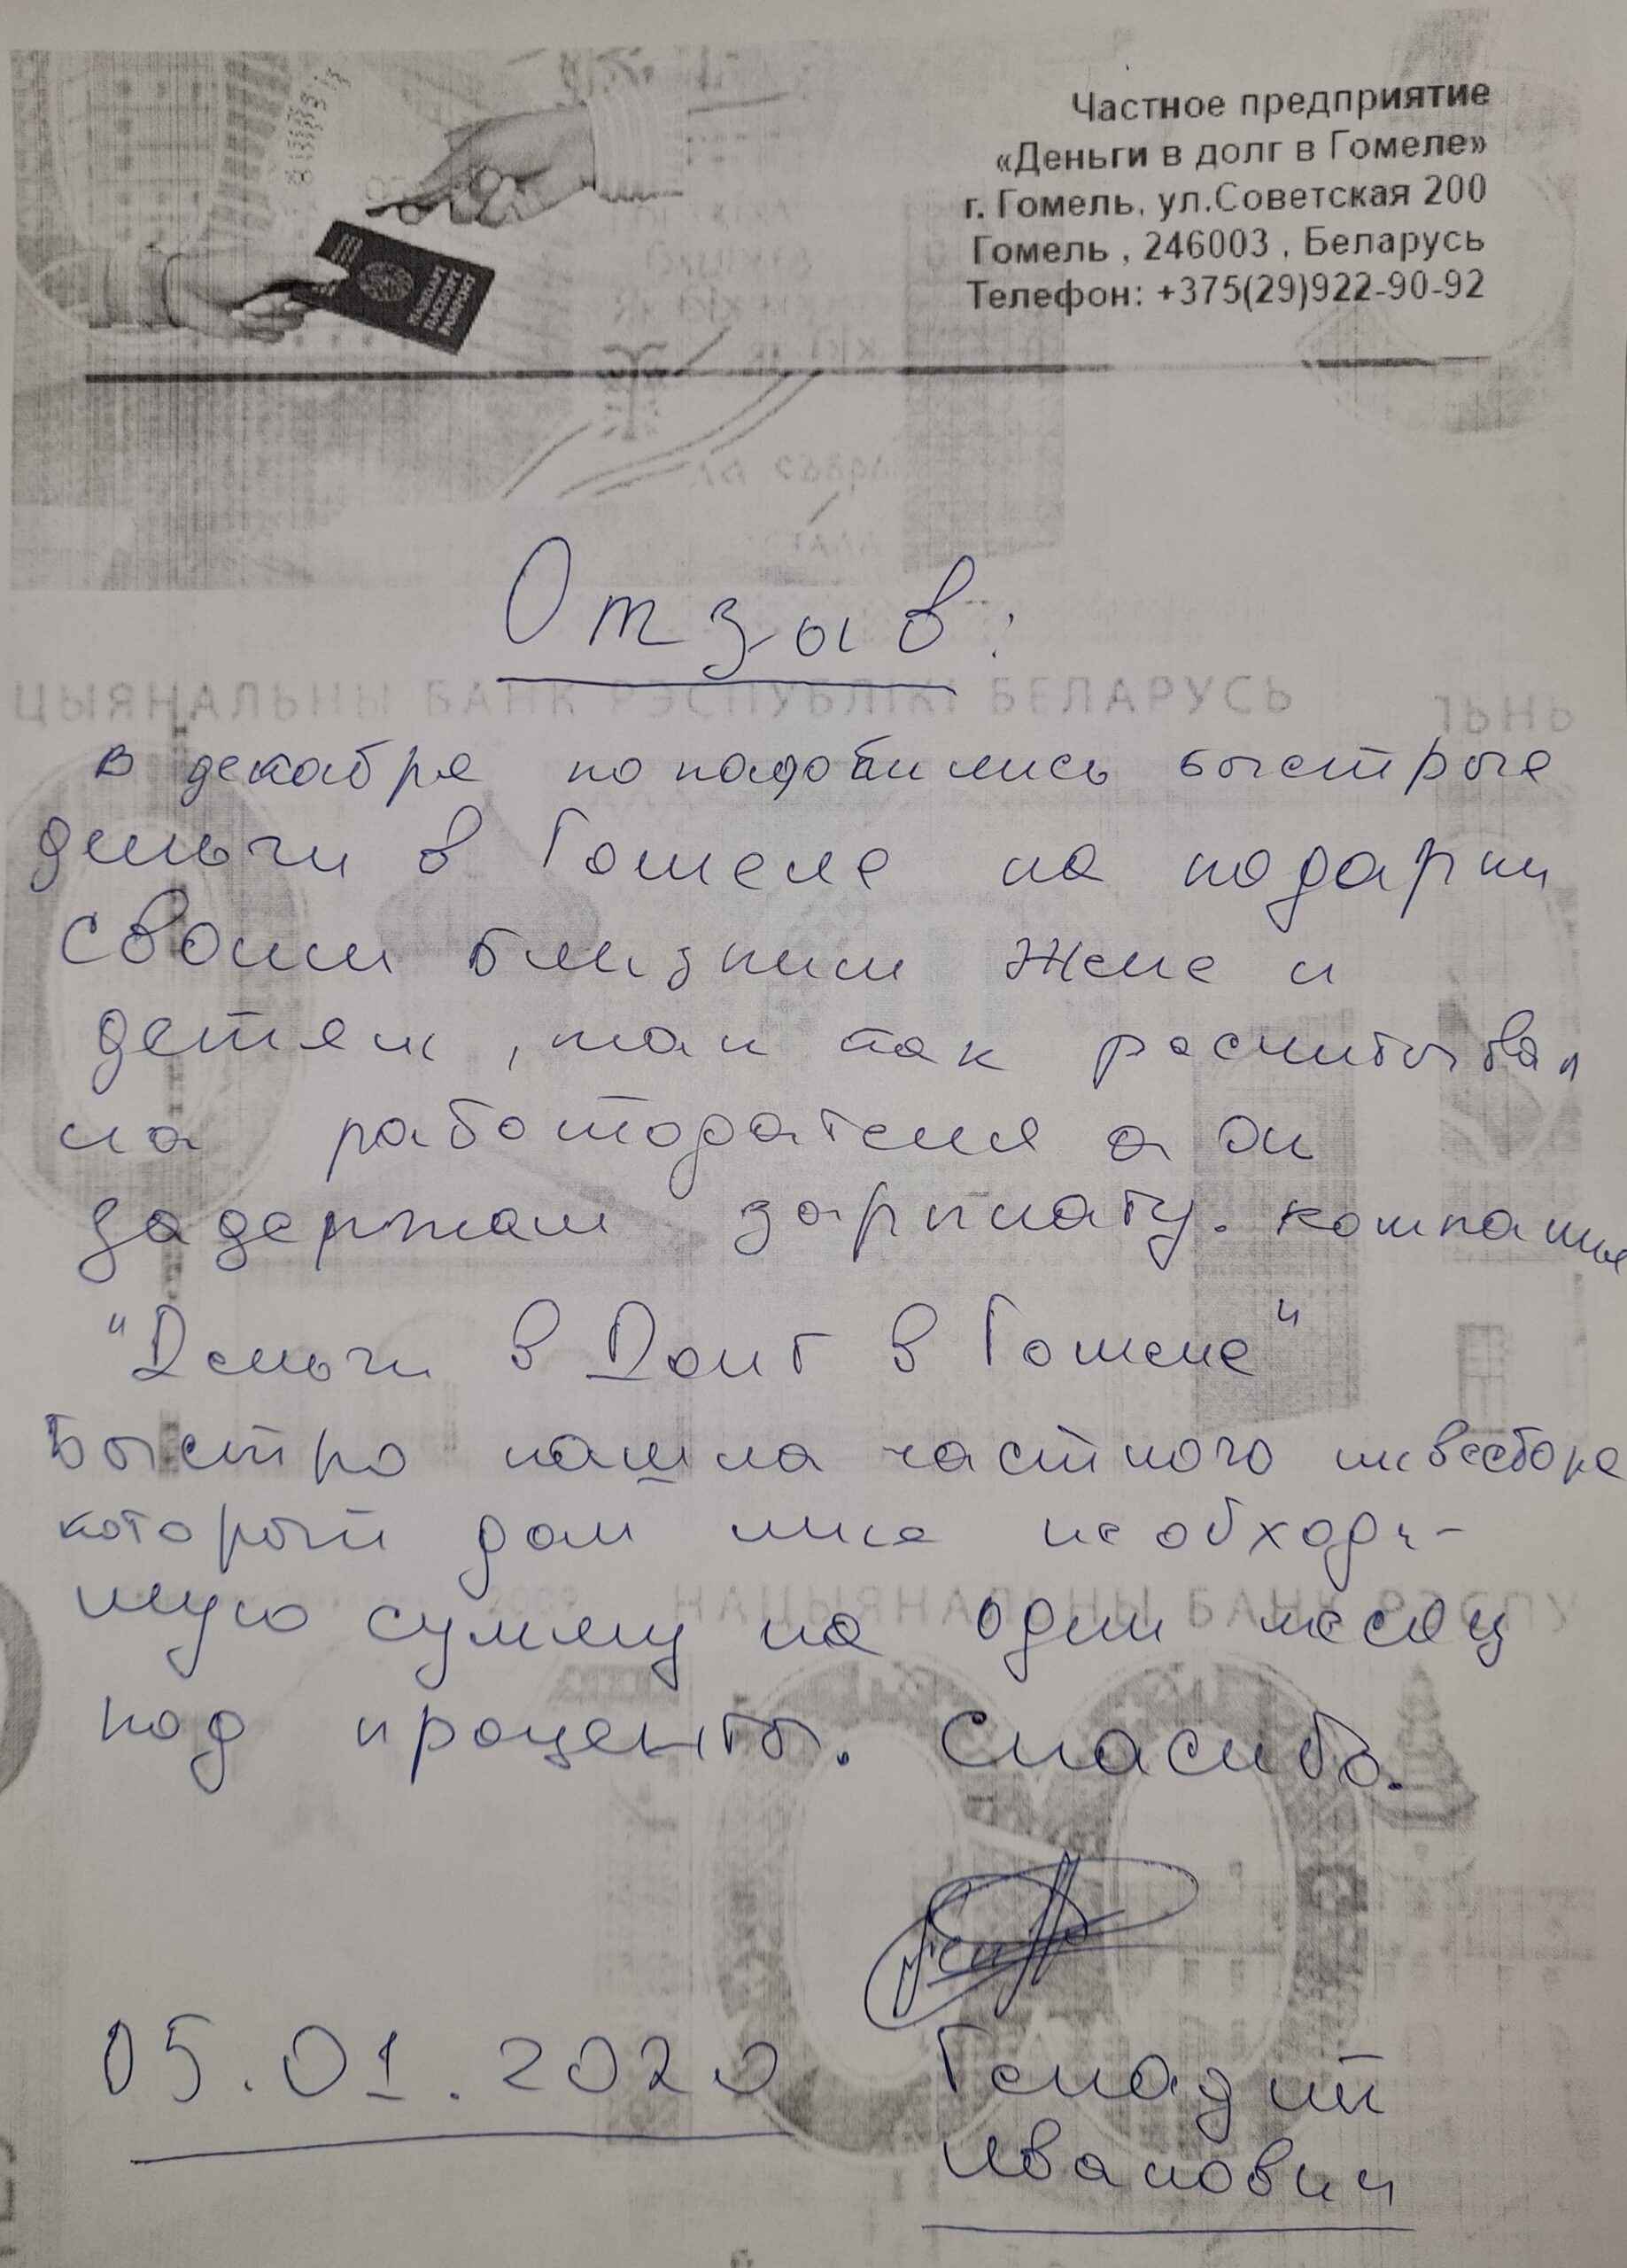 Частное предприятие
«Деньги в долг в Гомеле»
г. Гомель, ул.Советская 200
Гомель , 246003 , Беларусь
Телефон: +375(29)922-90-92
Отзыв:
ЦЫЯНАЛЬНЫ БАНК РЭСПУБЛІКІ БЕЛАРУСЬ
в декабре понадобились быстрые
деньги в Гомеле на подарки
своим близким жене и
детям, так как расчитывал
на работодателя а он
задержал зарплату. компания
"Деньги в Долг в Гомеле"
Быстро нашла частного инвестора
который дал мне необходи-
мую сумму на один месяц
НАЦЫЯНАЛЬНЫ БАНК РЭСПУ
под проценты. Спасибо.
05.01.2020
Генадий
Иванович